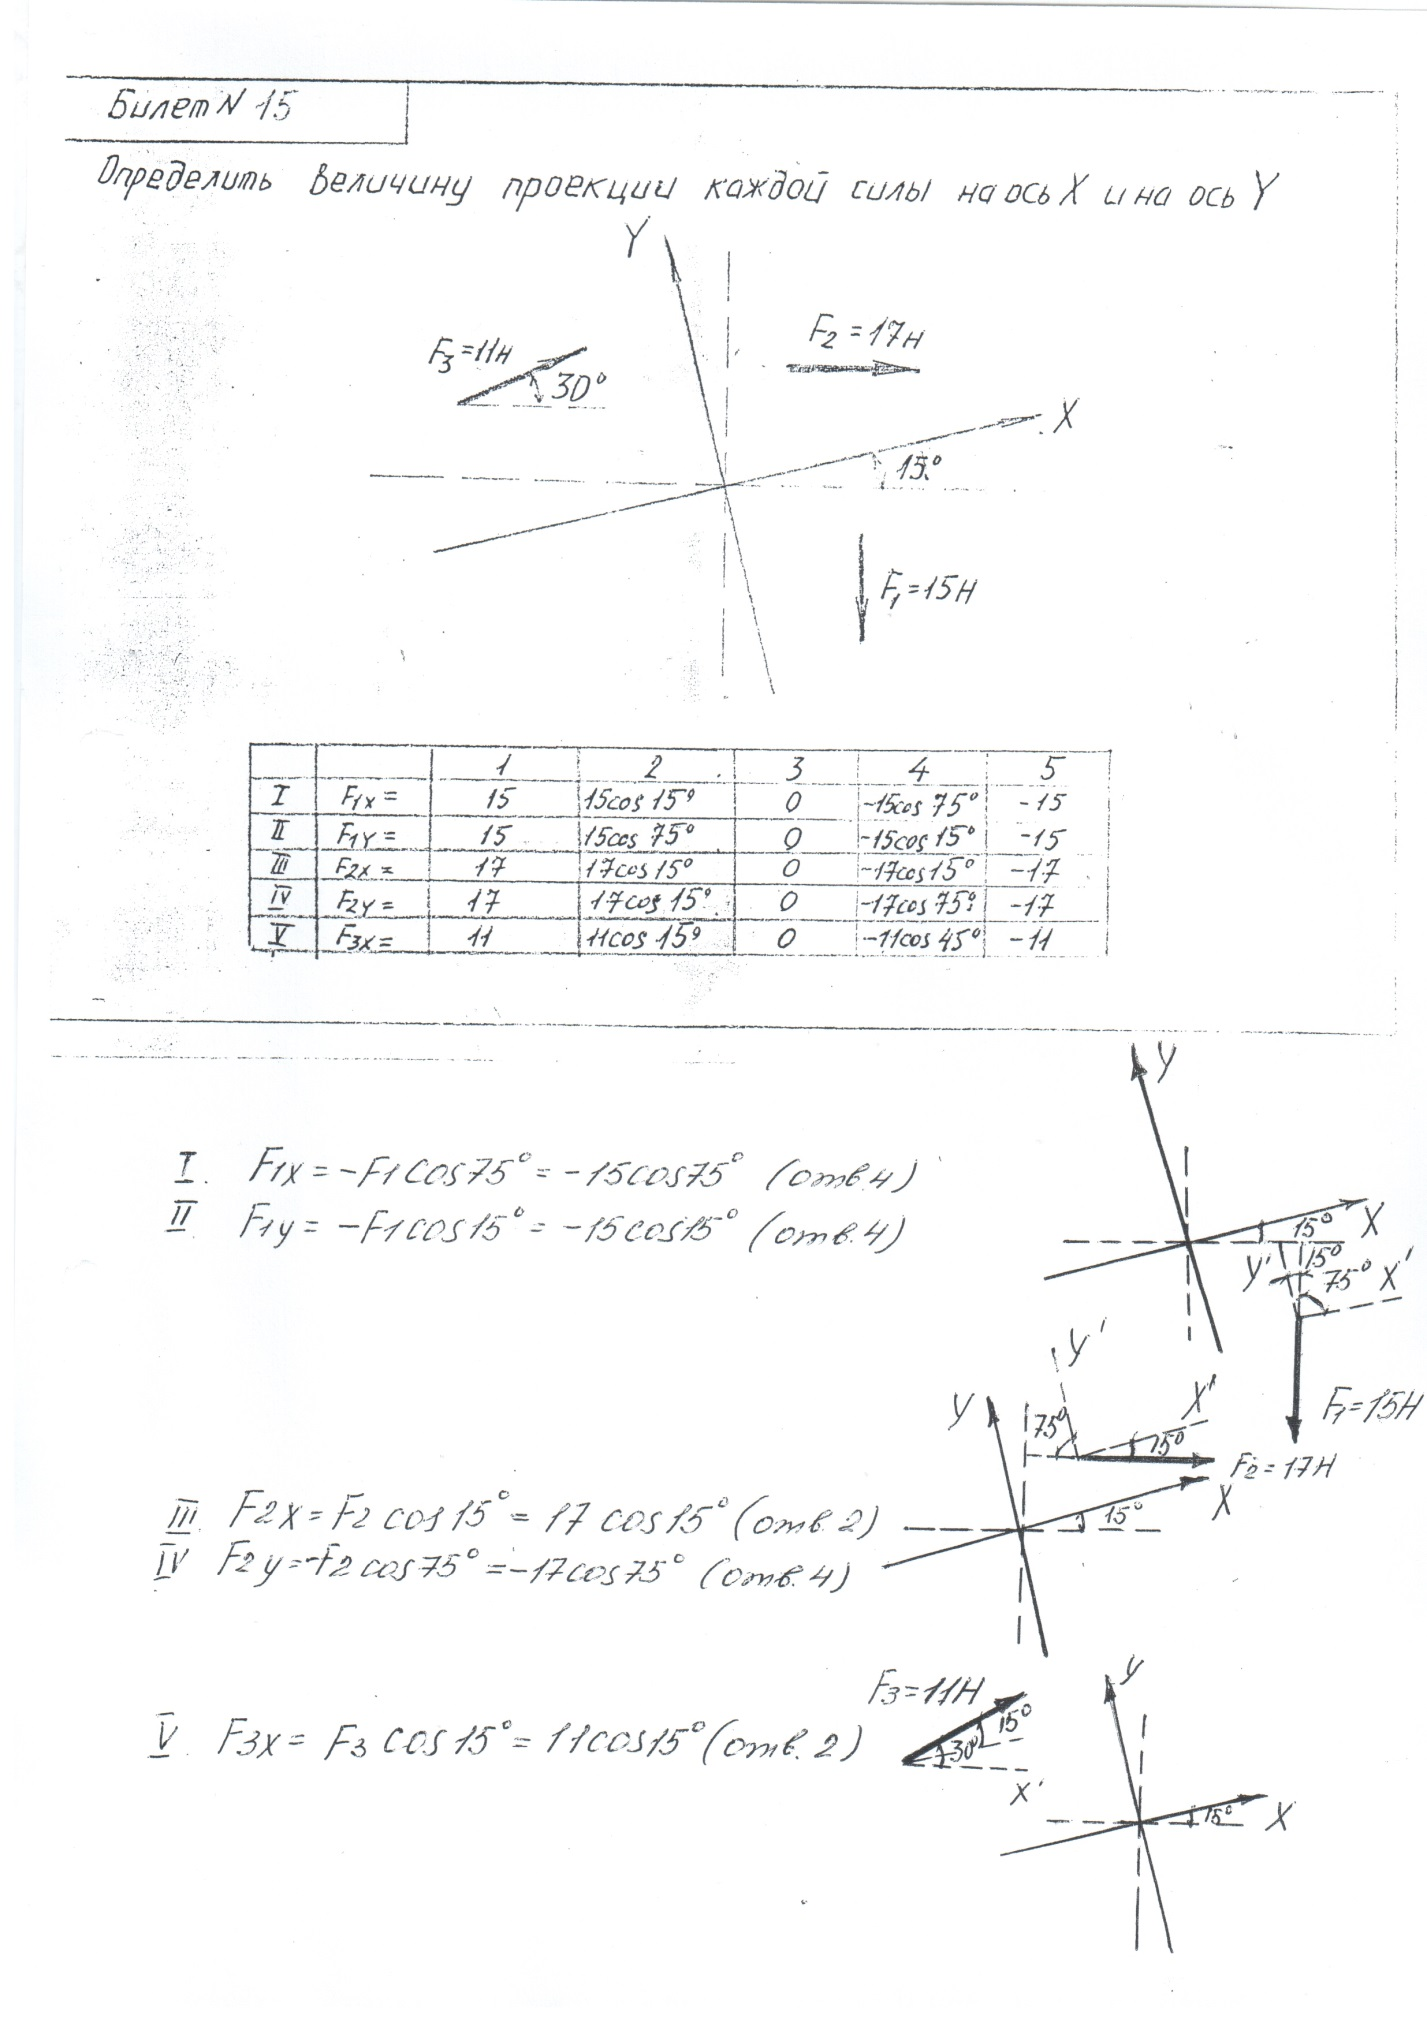 Билет N 15
Определить величину проекции каждой силы на ось X и на ось Y
Y
F2 = 17н
F3=11н
30°
X
15°
F1=15Н
1 2 3 4 5
I F1x = 15 15cos 15° 0 -15cos 75° -15
II F1Y = 15 15cos 75° 0 -15cos 15° -15
III F2x = 17 17cos 15° 0 -17cos 15° -17
IV F2y = 17 17cos 15° 0 -17cos 75° -17
V F3x = 11 11cos 15° 0 -11cos 45° -11
Y
I. F1x = -F1 cos75° = -15cos75° (отв.4)
II F1y = -F1cos15° = -15cos15° (отв.4)
15° X
Y' 15°
75° X'
F1=15Н
Y'
Y 75° X'
15°
F2=17Н
X
15°
III. F2x = F2 cos15° = 17 cos15° (отв.2)
IV F2y = -F2 cos75° = -17cos75° (отв.4)
F3=11Н
Y
15°
30°
X'
V. F3x = F3 cos15° = 11cos15° (отв.2)
15° X